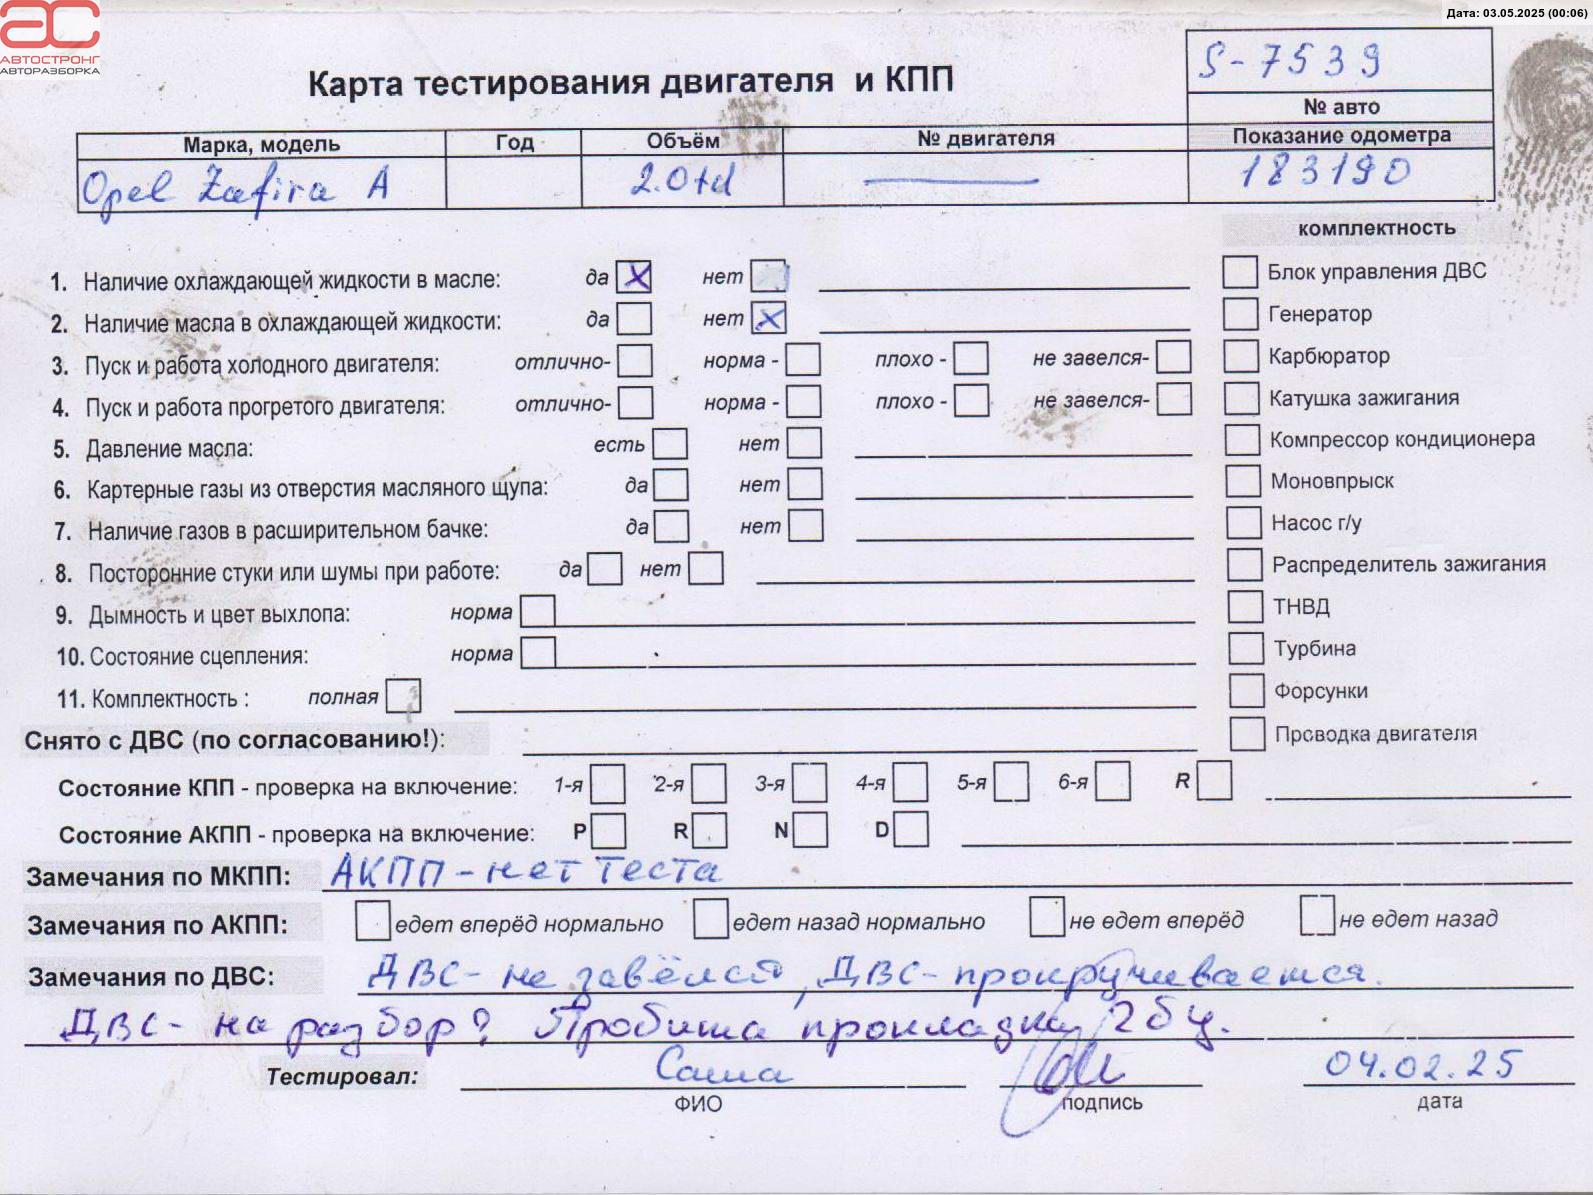 Дата: 03.05.2025 (00:06)
АС
АВТОСТРОНГ
АВТОРАЗБОРКА
Карта тестирования двигателя и КПП
S-7539
№ авто
Марка, модель Год Объём № двигателя Показание одометра
Opel Zafira A 2.0td 183190
комплектность
1. Наличие охлаждающей жидкости в масле: да X нет
Блок управления ДВС
2. Наличие масла в охлаждающей жидкости: да нет X
Генератор
3. Пуск и работа холодного двигателя: отлично- норма - плохо - не завелся-
Карбюратор
4. Пуск и работа прогретого двигателя: отлично- норма - плохо - не завелся-
Катушка зажигания
5. Давление масла: есть нет
Компрессор кондиционера
6. Картерные газы из отверстия масляного щупа: да нет
Моновпрыск
7. Наличие газов в расширительном бачке: да нет
Насос г/у
8. Посторонние стуки или шумы при работе: да нет
Распределитель зажигания
9. Дымность и цвет выхлопа: норма
ТНВД
10. Состояние сцепления: норма
Турбина
11. Комплектность : полная
Форсунки
Снято с ДВС (по согласованию!):
Проводка двигателя
Состояние КПП - проверка на включение: 1-я 2-я 3-я 4-я 5-я 6-я R
Состояние АКПП - проверка на включение: P R N D
Замечания по МКПП: АКПП - нет теста
Замечания по АКПП: едет вперёд нормально едет назад нормально не едет вперёд не едет назад
Замечания по ДВС: ДВС - не завёлся, ДВС - прокручивается.
ДВС - на разбор? Пробита прокладка гбц.
Тестировал: Саша 04.02.25
ФИО подпись дата